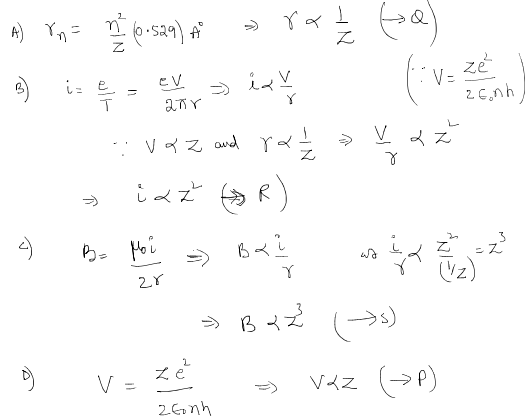 A) rₙ = n²/Z (0.529) A° ⇒ r ∝ 1/Z (→ Q)
B) i = e/T = eV/2πr ⇒ i ∝ V/r (∵ V = Ze²/2ϵ₀nh)
∵ V ∝ Z and r ∝ 1/Z ⇒ V/r ∝ Z²
⇒ i ∝ Z² (⇒ R)
C) B = μ₀i/2r ⇒ B ∝ i/r as i/r ∝ Z²/(1/Z) = Z³
⇒ B ∝ Z³ (→ S)
D) V = Ze²/2ϵ₀nh ⇒ V ∝ Z (→ P)